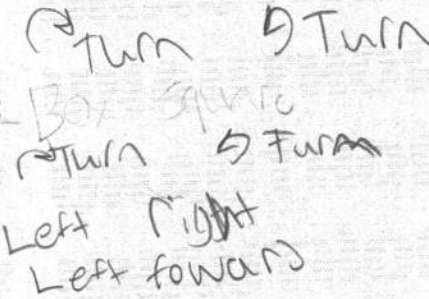 Turn Turn
- Box Square
Turn Furm
Left right
Left foward